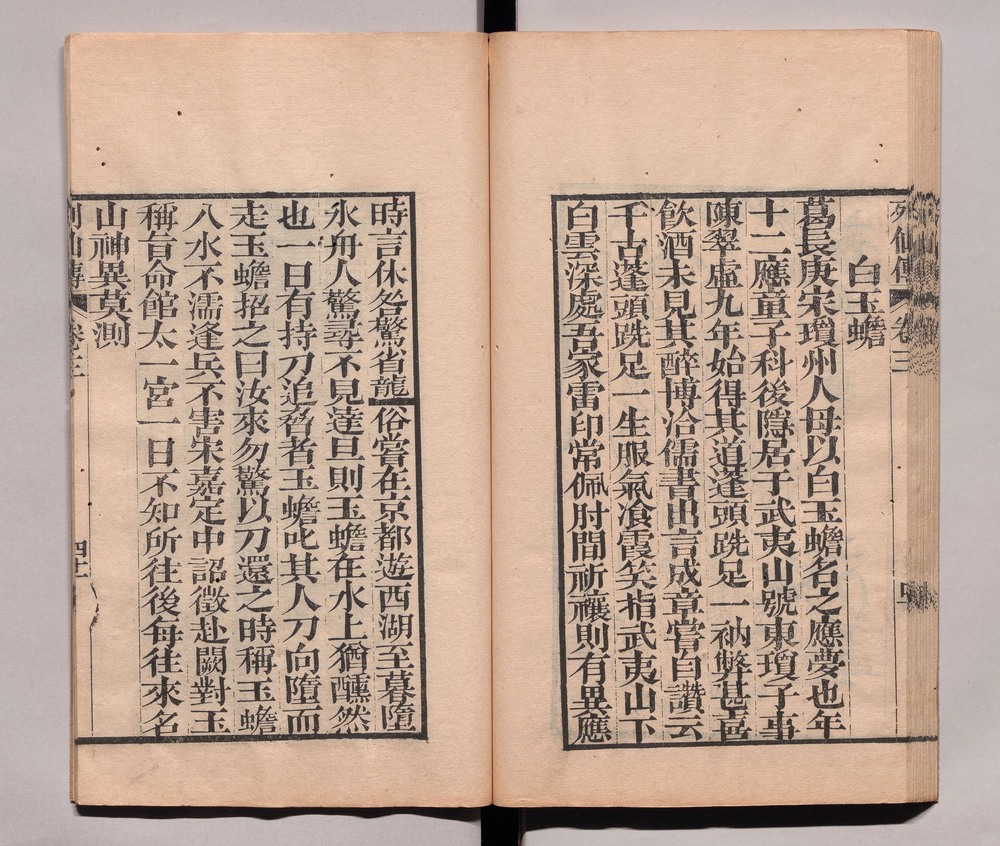 列仙傳 卷三
白玉蟾
葛長庚宋瓊州人母以白玉蟾名之應夢也年
十二應童子科後隱居于武夷山號東瓊子事
陳翠虛九年始得其道蓬頭跣足一衲弊甚喜
飲酒未見其醉博洽儒書出言成章嘗自讚云
千古蓬頭跣足一生服氣飡霞笑指武夷山下
白雲深處吾家雷印常佩肘間祈禳則有異應
時言休咎驚省龍俗嘗在京都遊西湖至暮墮
水舟人驚尋不見達旦則玉蟾在水上猶醺然
也一日有持刀追脅者玉蟾叱其人刀向墮而
走玉蟾招之曰汝來勿驚以刀還之時稱玉蟾
入水不濡逢兵不害宋嘉定中詔徵赴闕對玉
稱旨命館太一宮一日不知所往後每往來名
山神異莫測
列仙傳 卷三